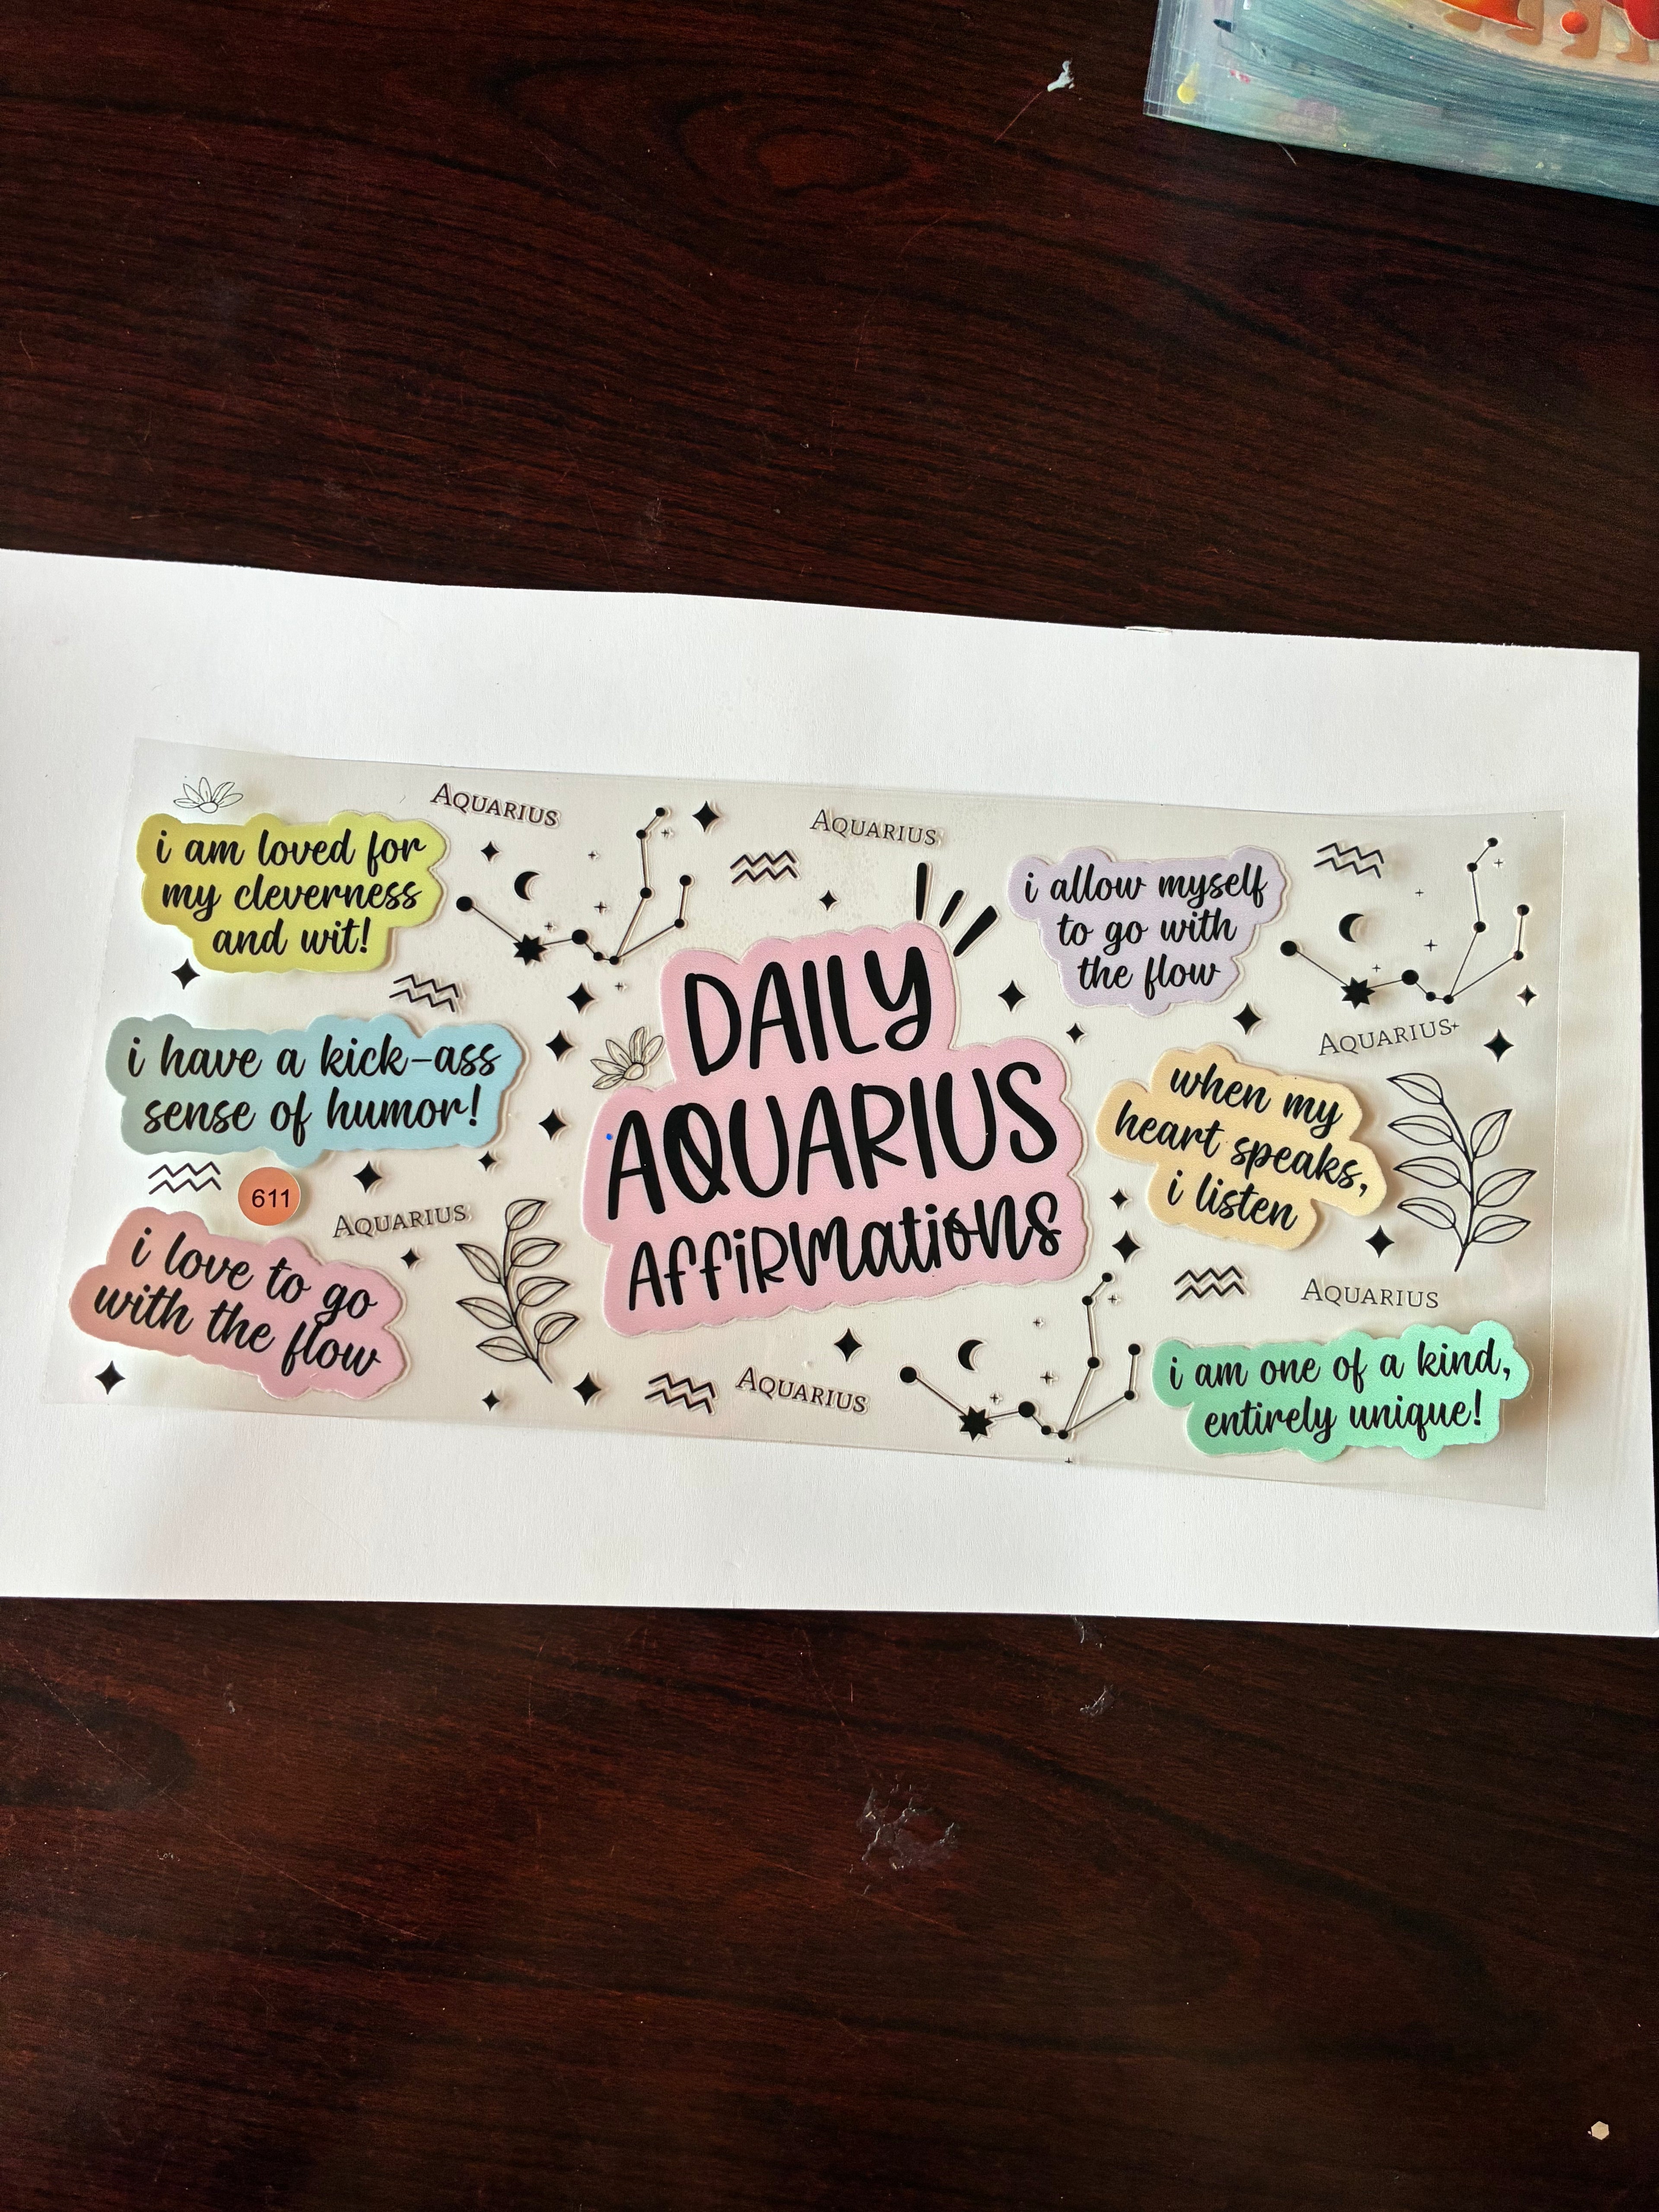 AQUARIUS
i am loved for
my cleverness
and wit!
i have a kick-ass
sense of humor!
611
AQUARIUS
i love to go
with the flow
AQUARIUS
DAILY
AQUARIUS
AffiRMatioNS
AQUARIUS
i allow myself
to go with
the flow
AQUARIUS
when my
heart speaks,
i listen
AQUARIUS
i am one of a kind,
entirely unique!